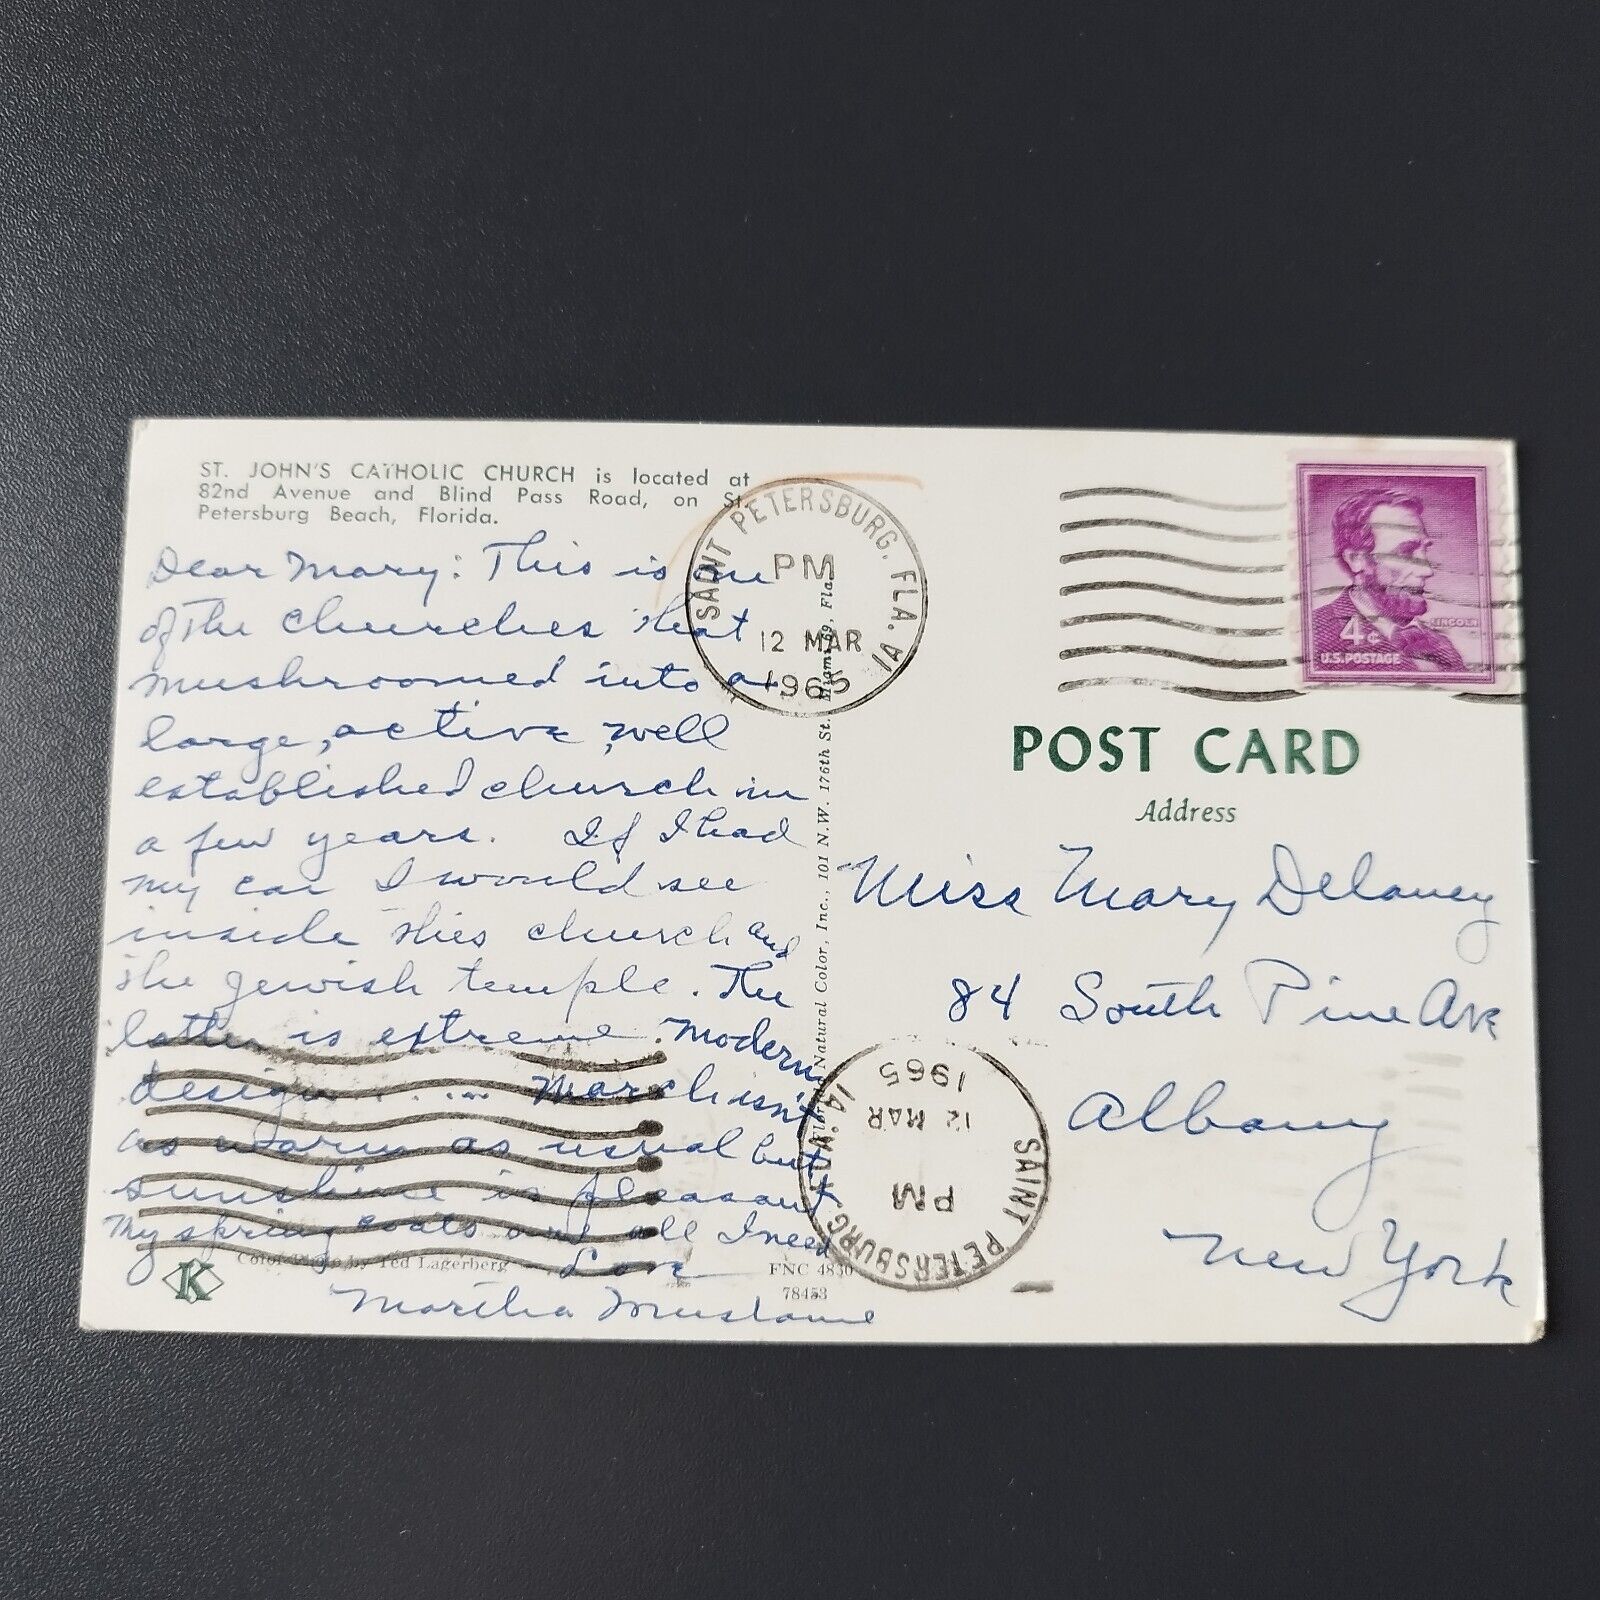 ST. JOHN'S CATHOLIC CHURCH is located at
82nd Avenue and Blind Pass Road, on St.
Petersburg Beach, Florida.
Dear Mary: This is one
of the churches that
mushroomed into a
large, active, well
established church in
a few years. If I had
my car I would see
inside this church and
the Jewish temple. The
latter is extreme modern
design.... March isn't
as warm as usual but
sunshine is pleasant
My spring coats are all I need
Love
Martha
Color Photo by Ted Lagerberg
K
FNC 4830
78453
Natural Color, Inc., 101 N.W. 176th St. Miami 69, Fla.
SAINT PETERSBURG, FLA. 1A
PM
12 MAR
1965
SAINT PETERSBURG, FLA. 1A
PM
12 MAR
1965
LINCOLN
4¢
U.S. POSTAGE
POST CARD
Address
Miss Mary Delaney
84 South Pine Ave
Albany
New York